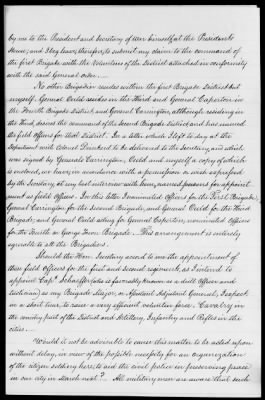 by me to the President and Secretary of War himself at the Presidents
House, and I beg leave, therefore, to submit my claim to the command of
the first Brigade with the Volunteers of the District attached in conformity
with the said General order.
No other Brigadier resides within the first Brigade District but
myself. General Ould resides in the Third and General Caperton in
the Fourth Brigade District, and General Carrington, although residing in
the Third, desires the command of the Second Brigade District, and has named
the field officers for that District. In a letter which I left to day at the
Department with Colonel Drinkard to be delivered to the Secretary, and which
was signed by Generals Carrington, Ould and myself a copy of which
is enclosed, we have, in accordance with a permission or wish expressed
by the Secretary, at my last interview with him, named persons for appoint
ment as field officers. In this letter I nominated Officers for the First Brigade,
General Carrington for the Second Brigade, and General Ould for the Third
Brigade; and General Ould acting for General Caperton, nominated Officers
for the Fourth or George Town Brigade. This arrangement is entirely
agreeable to all the Brigadiers.
Should the Hon. Secretary accede to me the appointment of
these field Officers for the first and second regiments, as I intend to
appoint Capt Schaeffer (who is favorably known as a drill Officer and
tactician) as my Brigade Major, or Assistant Adjutant General, I expect
in a short time, to raise a very efficient, volunteer force. Cavalry in
the country part of the District and Artillery, Infantry and Rifles in the
cities.
Would it not be advisable to cause this matter to be acted upon
without delay, in view of the possible necessity for an organization
of the citizen soldiery here, to aid the civil police in preserving peace
in our city in March next? All military men are aware that such